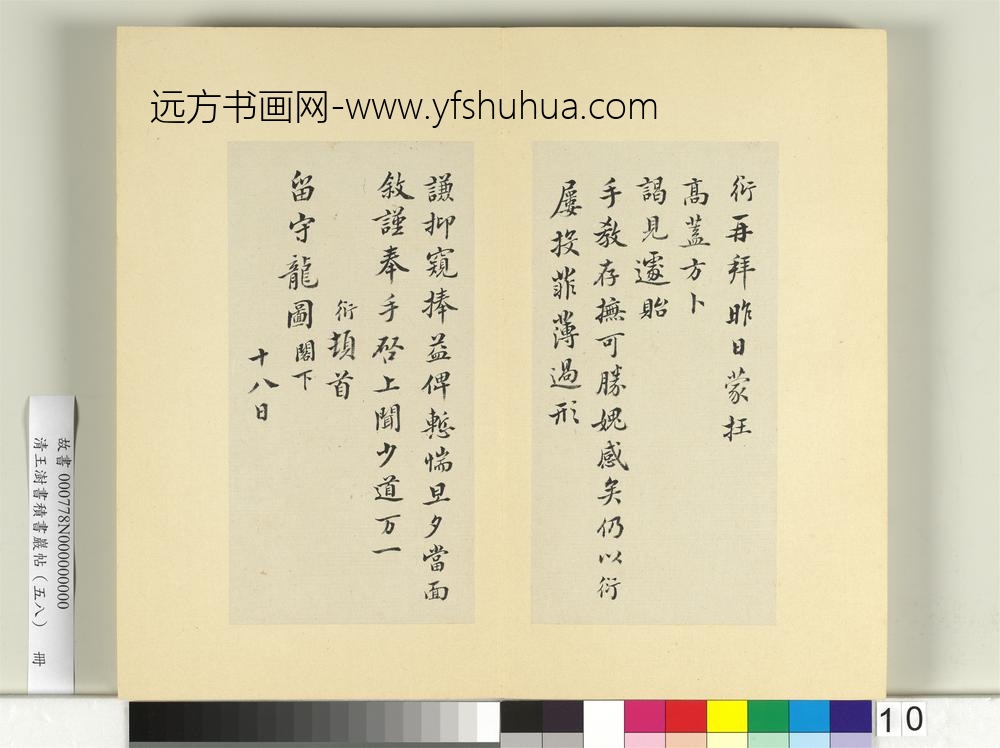 远方书画网-www.yfshuhua.com
衍再拜昨日蒙枉
高蓋方卜
謁見遽貽
手教存撫可勝媿感矣仍以衍
屢投菲薄過形
謙抑窺捧益俾慙惴旦夕當面
敘謹奉手啓上聞少道万一
衍頓首
留守龍圖閣下
十八日
故書 000778N000000000
清王澍書積書巖帖（五八） 冊
10